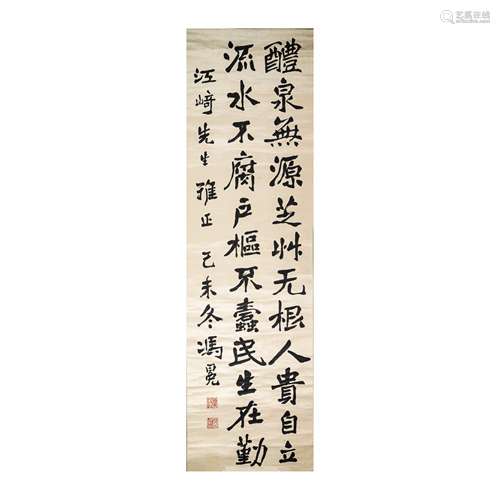 醴泉無源芝艸无根人貴自立
流水不腐户樞不蠹民生在勤
江﨑先生雅正 己未冬馮冕
艺狐在线